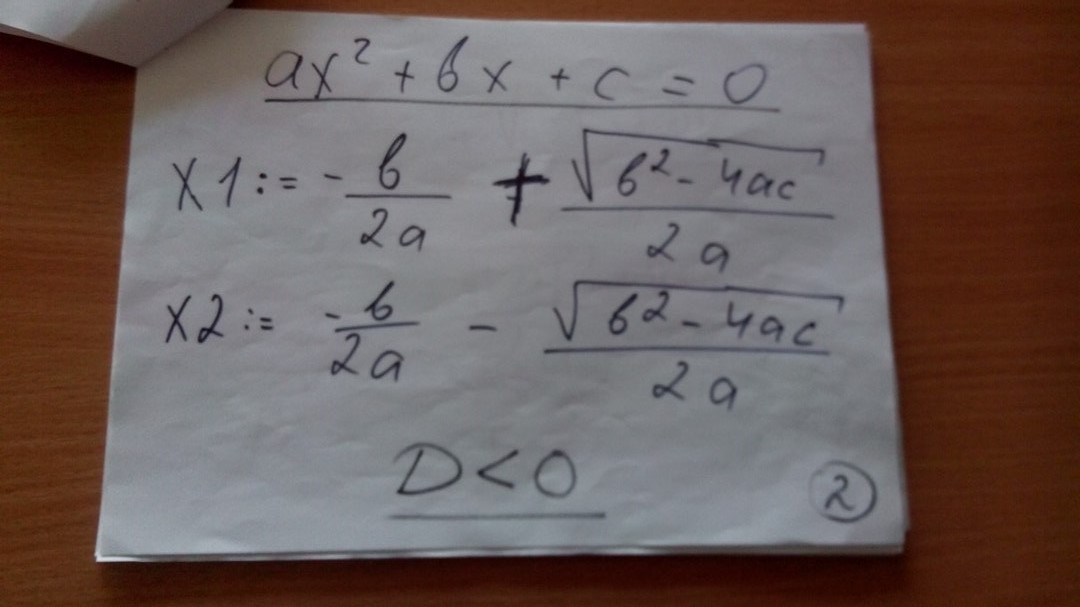 ax² + bx + c = 0
X1 := - b/2a + √(b² - 4ac)/2a
X2 := - b/2a - √(b² - 4ac)/2a
D < 0
2